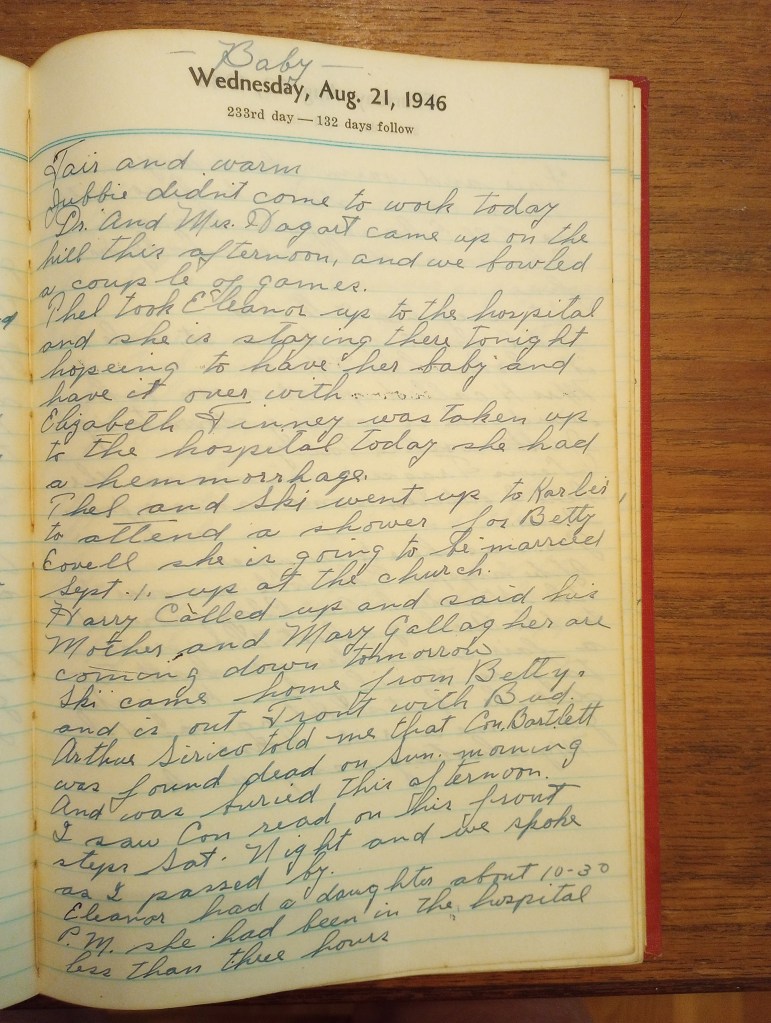 — Baby —
Wednesday, Aug. 21, 1946
233rd day — 132 days follow
Fair and warm
Jubbie didn't come to work today
Dr. And Mrs. Dagart came up on the
hill this afternoon, and we bowled
a couple of games.
Thel took Eleanor up to the hospital
and she is staying there tonight
hopeing to have her baby and
have it over with
Elizabeth Finney was taken up
to the hospital today she had
a hemmorrhage.
Thel and Ski went up to
to attend a shower for Betty
Covell she is going to be married
Sept. 1. up at the church.
Harry Called up and said his
Mother and Mary Gallagher are
coming down tomorrow
Ski came home from Betty.
and is out Front with Bud.
Arthur Sirico told me that Con. Bartlett
was found dead on Sun. morning
And was buried This afternoon.
I saw Con read on this front
steps Sat. Night and we spoke
as I passed by.
Eleanor had a daughter about 10-30
P.M. she had been in the hospital
less than three hours